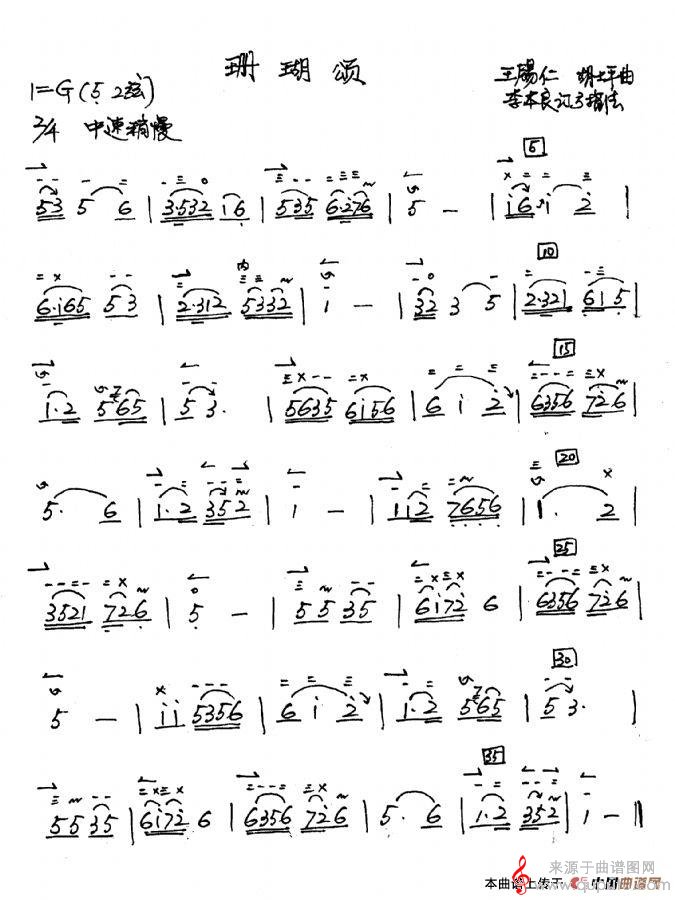 珊瑚颂
1=G(5 2弦)
王錫仁 胡士平曲
李本良订弓指法
2/4 中速稍慢
5
53 5 6 | 3·532 i6 | 535 6·276 | 5 — | i6·i 2 |
10
6·i65 53 | 2·312 5332 | i — | 32 3 5 | 2·321 615 |
15
1·2 565 | 5 3· | 5635 6156 | 6 i 2 | 6356 726 |
20
5· 6 | 1·2 352 | 1 — | 112 7656 | 1· 2 |
25
3521 726 | 5 — | 55 35 | 6172 6 | 6356 726 |
30
5 — | ii 5356 | 6 i 2 | 1·2 565 | 53· |
35
55 35 | 6172 6 | 6356 726 | 5· 6 | 1·2 352 | 1 — ‖
来源于曲谱图网
本曲谱上传于 中国曲谱网